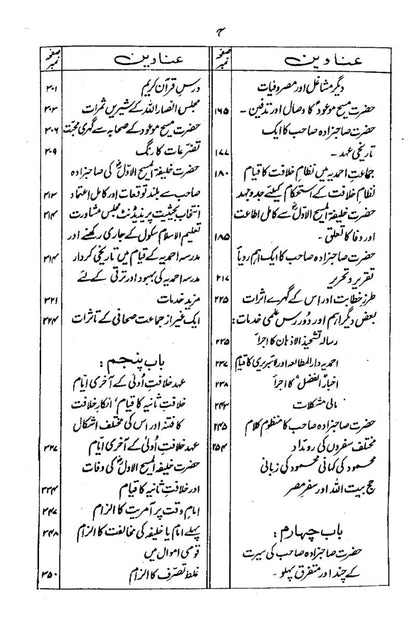 عناوین صفحہ نمبر
دیگر مشاغل اور مصروفیات
حضرت مسیح موعودؑ کا وصال اور تدفین۔ ۱۶۵
حضرت صاحبزادہ صاحب کا ایک
تاریخی عہد۔ ۱۷۷
جماعت احمدیہ میں نظام خلافت کا قیام ۱۸۰
نظام خلافت کے استحکام کیلئے جدوجہد
حضرت خلیفۃ المسیح الاولؓ سے کامل اطاعت
اور وفا کا تعلق۔ ۱۸۵
حضرت صاحبزادہ صاحب کا ایک اہم رویاء
تقریر و تحریر ۲۱۷
طرزِ خطابت اور اس کے گہرے اثرات ۲۲۵
بعض دیگر اہم اور دُور رس علمی خدمات:
رسالہ تشحیذ الاذہان کا اجراء ۲۳۵
احمدیہ دارالمطالعہ اور لائبریری کا قیام ۲۳۷
اخبار "الفضل" کا اجراء ۲۳۸
مالی مشکلات ۲۴۳
حضرت صاحبزادہ صاحب کا منظوم کلام ۲۴۵
مختلف سفروں کی روئداد ۲۵۴
محمود کی کہانی محمود کی زبانی
حج بیت اللہ اور سفر مصر
باب چہارم:
حضرت صاحبزادہ صاحب کی سیرت
کے چند اور متفرق پہلو۔
عناوین صفحہ نمبر
درسِ قرآن کریم ۳۰۱
مجلس انصار اللہ کے شیریں ثمرات ۳۰۳
حضرت مسیح موعودؑ کے صحابہ سے گہری محبت ۳۰۶
تضرعات کا رنگ ۳۰۹
حضرت خلیفۃ المسیح الاولؓ کی صاحبزادہ
صاحب سے بلند توقعات اور کامل اعتماد ۳۱۳
انتخاب بحیثیت پریذیڈنٹ مجلس مشاورت
تعلیم الاسلام سکول کے جاری رکھنے اور
مدرسہ احمدیہ کے قیام میں تاریخی کردار ۳۱۴
مدرسہ احمدیہ کی بہبود اور ترقی کے لئے
مزید خدمات ۳۲۱
ایک غیر از جماعت صحافی کے تاثرات ۳۲۴
باب پنجم:
عہد خلافتِ اُولیٰ کے آخری ایام
خلافتِ ثانیہ کا قیام، انکارِ خلافت
کا فتنہ اور اس کی مختلف اشکال
عہد خلافتِ اُولیٰ کے آخری ایام ۳۲۷
حضرت خلیفۃ المسیح الاولؓ کی وفات
اور خلافتِ ثانیہ کا قیام ۳۳۴
امامِ وقت پر آمریت کا الزام ۳۴۷
پہلے امام یا خلیفہ کی مخالفت کا الزام ۳۴۸
قومی اموال میں
غلط تصرف کا الزام ۳۵۰